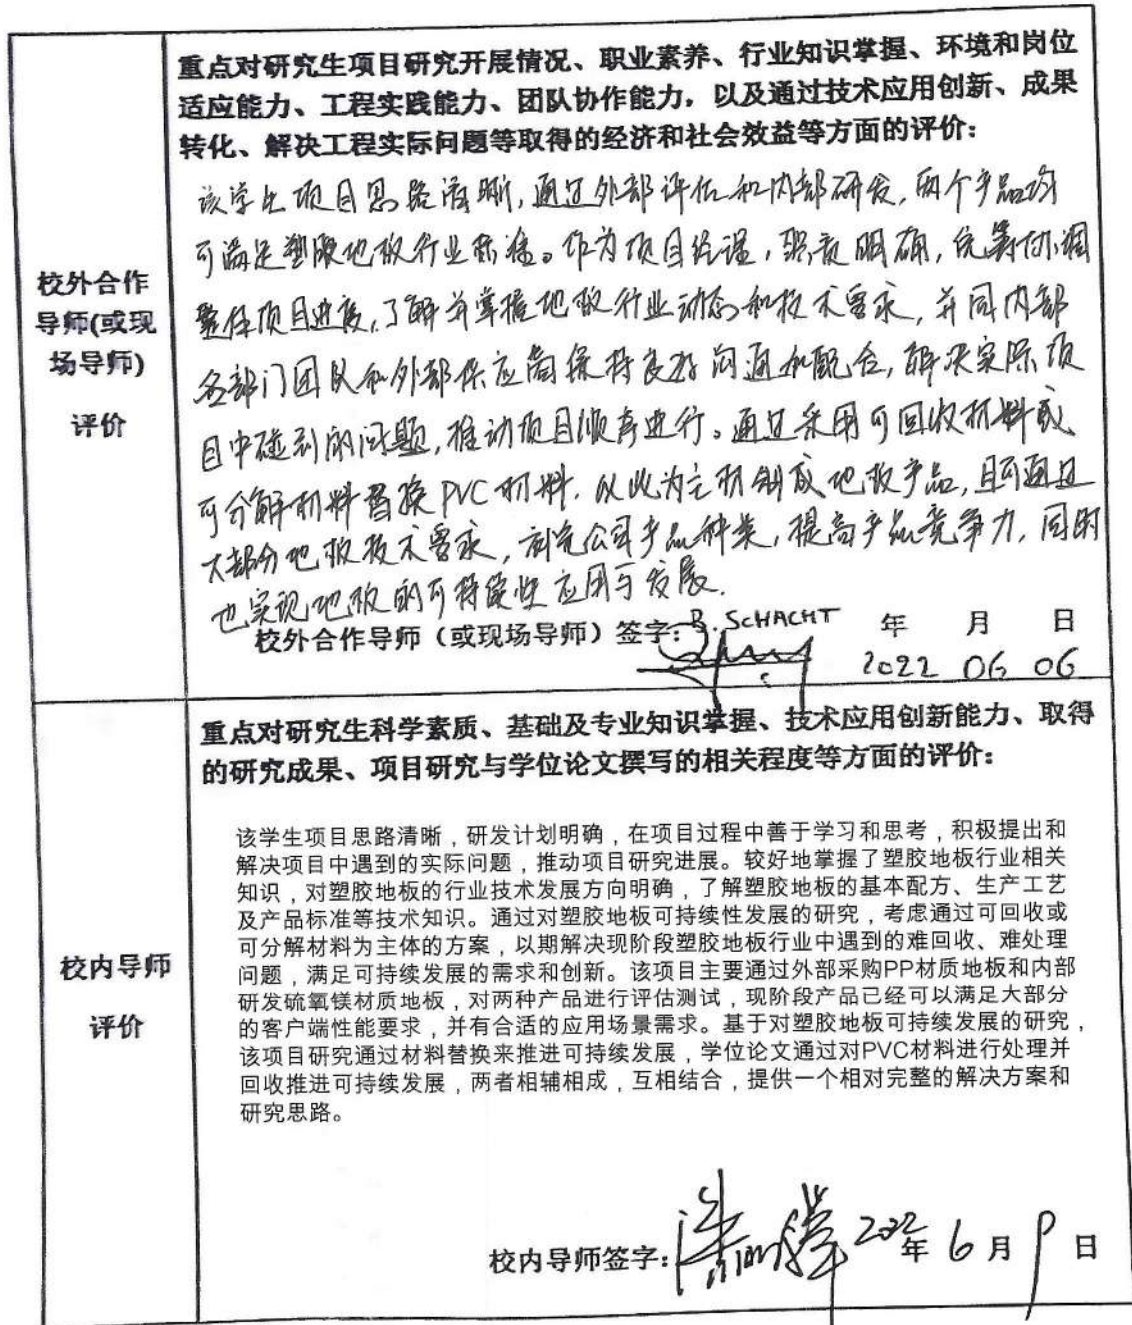 重点对研究生项目研究开展情况、职业素养、行业知识掌握、环境和岗位
适应能力、工程实践能力、团队协作能力，以及通过技术应用创新、成果
转化、解决工程实际问题等取得的经济和社会效益等方面的评价：
校外合作
导师(或现
场导师)
评价
该学生项目思路清晰，通过外部评估和内部研发，两个产品均
可满足塑胶地板行业标准。作为项目经理，职责明确，统筹协调
整体项目进度，了解并掌握地板行业动态和技术要求，并同内部
各部门团队和外部供应商保持良好沟通和配合，解决实际项
目中碰到的问题，推动项目顺序进行。通过采用可回收材料或
可分解材料替换PVC材料，以此为主材制成地板产品，且可通过
大部分地板技术要求，补充公司产品种类，提高产品竞争力，同时
也实现地板的可持续性应用与发展.
校外合作导师（或现场导师）签字：B. SCHACHT 年 月 日
2022 06 06
重点对研究生科学素质、基础及专业知识掌握、技术应用创新能力、取得
的研究成果、项目研究与学位论文撰写的相关程度等方面的评价：
校内导师
评价
该学生项目思路清晰，研发计划明确，在项目过程中善于学习和思考，积极提出和
解决项目中遇到的实际问题，推动项目研究进展。较好地掌握了塑胶地板行业相关
知识，对塑胶地板的行业技术发展方向明确，了解塑胶地板的基本配方、生产工艺
及产品标准等技术知识。通过对塑胶地板可持续性发展的研究，考虑通过可回收或
可分解材料为主体的方案，以期解决现阶段塑胶地板行业中遇到的难回收、难处理
问题，满足可持续发展的需求和创新。该项目主要通过外部采购PP材质地板和内部
研发硫氧镁材质地板，对两种产品进行评估测试，现阶段产品已经可以满足大部分
的客户端性能要求，并有合适的应用场景需求。基于对塑胶地板可持续发展的研究，
该项目研究通过材料替换来推进可持续发展，学位论文通过对PVC材料进行处理并
回收推进可持续发展，两者相辅相成，互相结合，提供一个相对完整的解决方案和
研究思路。
校内导师签字： 2022年 6 月 9 日